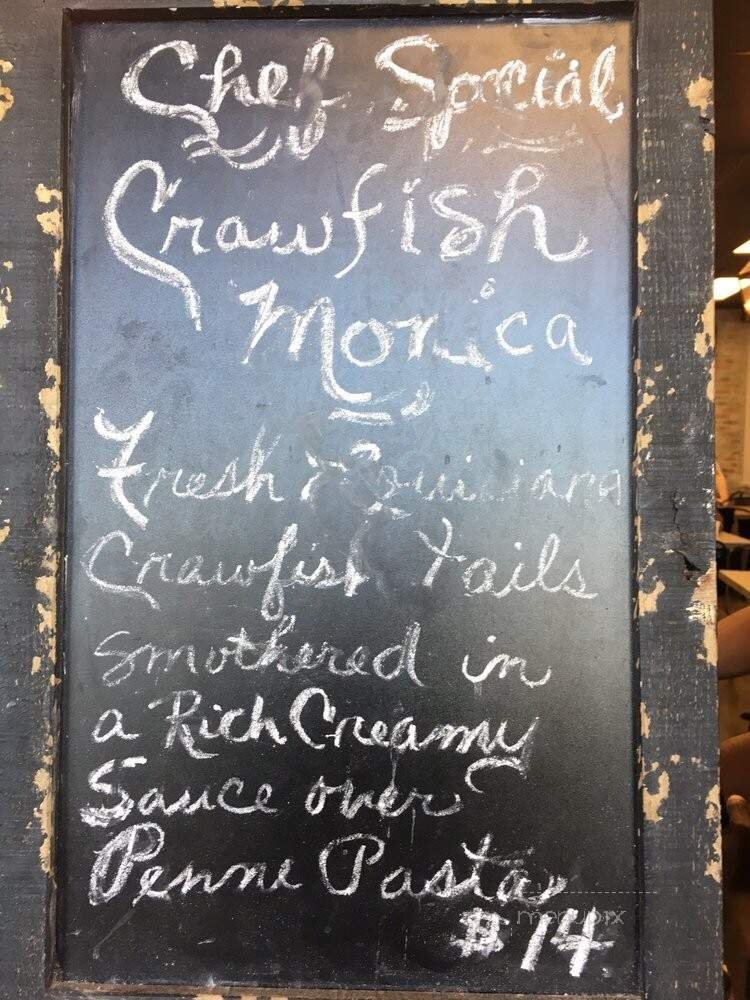 Chef Special
Crawfish
Monica
Fresh Louisiana
Crawfish Tails
Smothered in
a Rich Creamy
Sauce over
Penne Pasta
$14
menupix